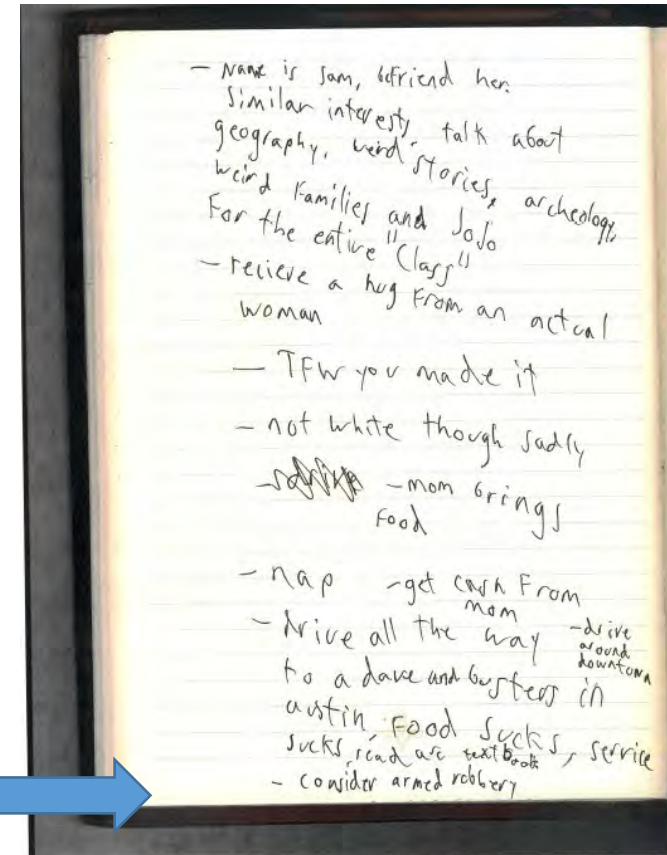 - Name is Sam, befriend her.
Similar interests, talk about
geography, weird stories, archeology,
weird Families and JoJo
For the entire "Class"
- recieve a hug From an actual
woman
- TFW you made it
- not white though sadly
- mom brings
Food
- nap - get cash From
mom
- drive all the way
- drive
around
downtown
to a dave and busters in
austin, Food Sucks, service
sucks, read arc textbook
- consider armed robbery